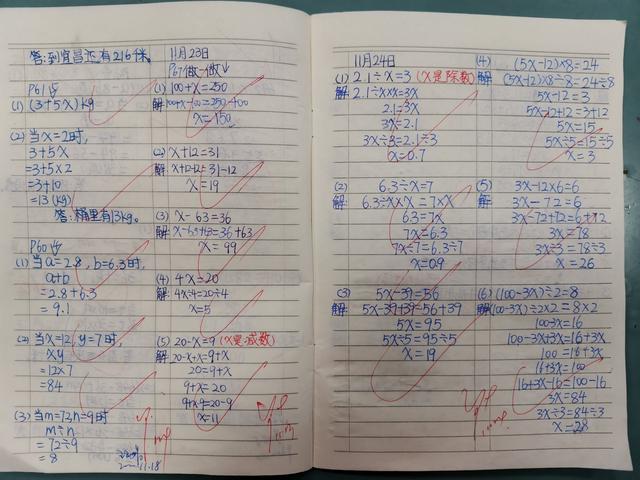 答:到宜昌还有216千米.
P61 ↓
(1) (3+5x)kg
(2) 当x=2时,
3+5x
=3+5×2
=3+10
=13 (kg)
答:桶里有13kg.
P60 ↓
(1) 当a=2.8, b=6.3时,
a+b
=2.8+6.3
=9.1
(2) 当x=12, y=7时,
xy
=12×7
=84
(3) 当m=72,n=9时
m÷n
=72÷9
=8
11.18
11月23日
P67做一做↓
(1) 100+x=250
解:100+x-100=250-100
x=150
(2) x+12=31
解: x+12-12=31-12
x=19
(3) x-63=36
解: x-63+63=36+63
x=99
(4) 4x=20
解: 4x÷4=20÷4
x=5
(5) 20-x=9 (x是减数)
解: 20-x+x=9+x
20=9+x
9+x=20
9+x-9=20-9
x=11
11月24日
(1) 2.1÷x=3 (x是除数)
解: 2.1÷x×x=3x
2.1=3x
3x=2.1
3x÷3=2.1÷3
x=0.7
(2) 6.3÷x=7
解: 6.3÷x×x=7×x
6.3=7x
7x=6.3
7x÷7=6.3÷7
x=0.9
(3) 5x-39=56
解: 5x-39+39=56+39
5x=95
5x÷5=95÷5
x=19
(4) (5x-12)×8=24
解: (5x-12)×8÷8=24÷8
5x-12=3
5x-12+12=3+12
5x=15
5x÷5=15÷5
x=3
(5) 3x-12×6=6
解: 3x-72=6
3x-72+72=6+72
3x=78
3x÷3=78÷3
x=26
(6) (100-3x)÷2=8
解:(100-3x)÷2×2=8×2
100-3x=16
100-3x+3x=16+3x
100=16+3x
16+3x=100
16+3x-16=100-16
3x=84
3x÷3=84÷3
x=28